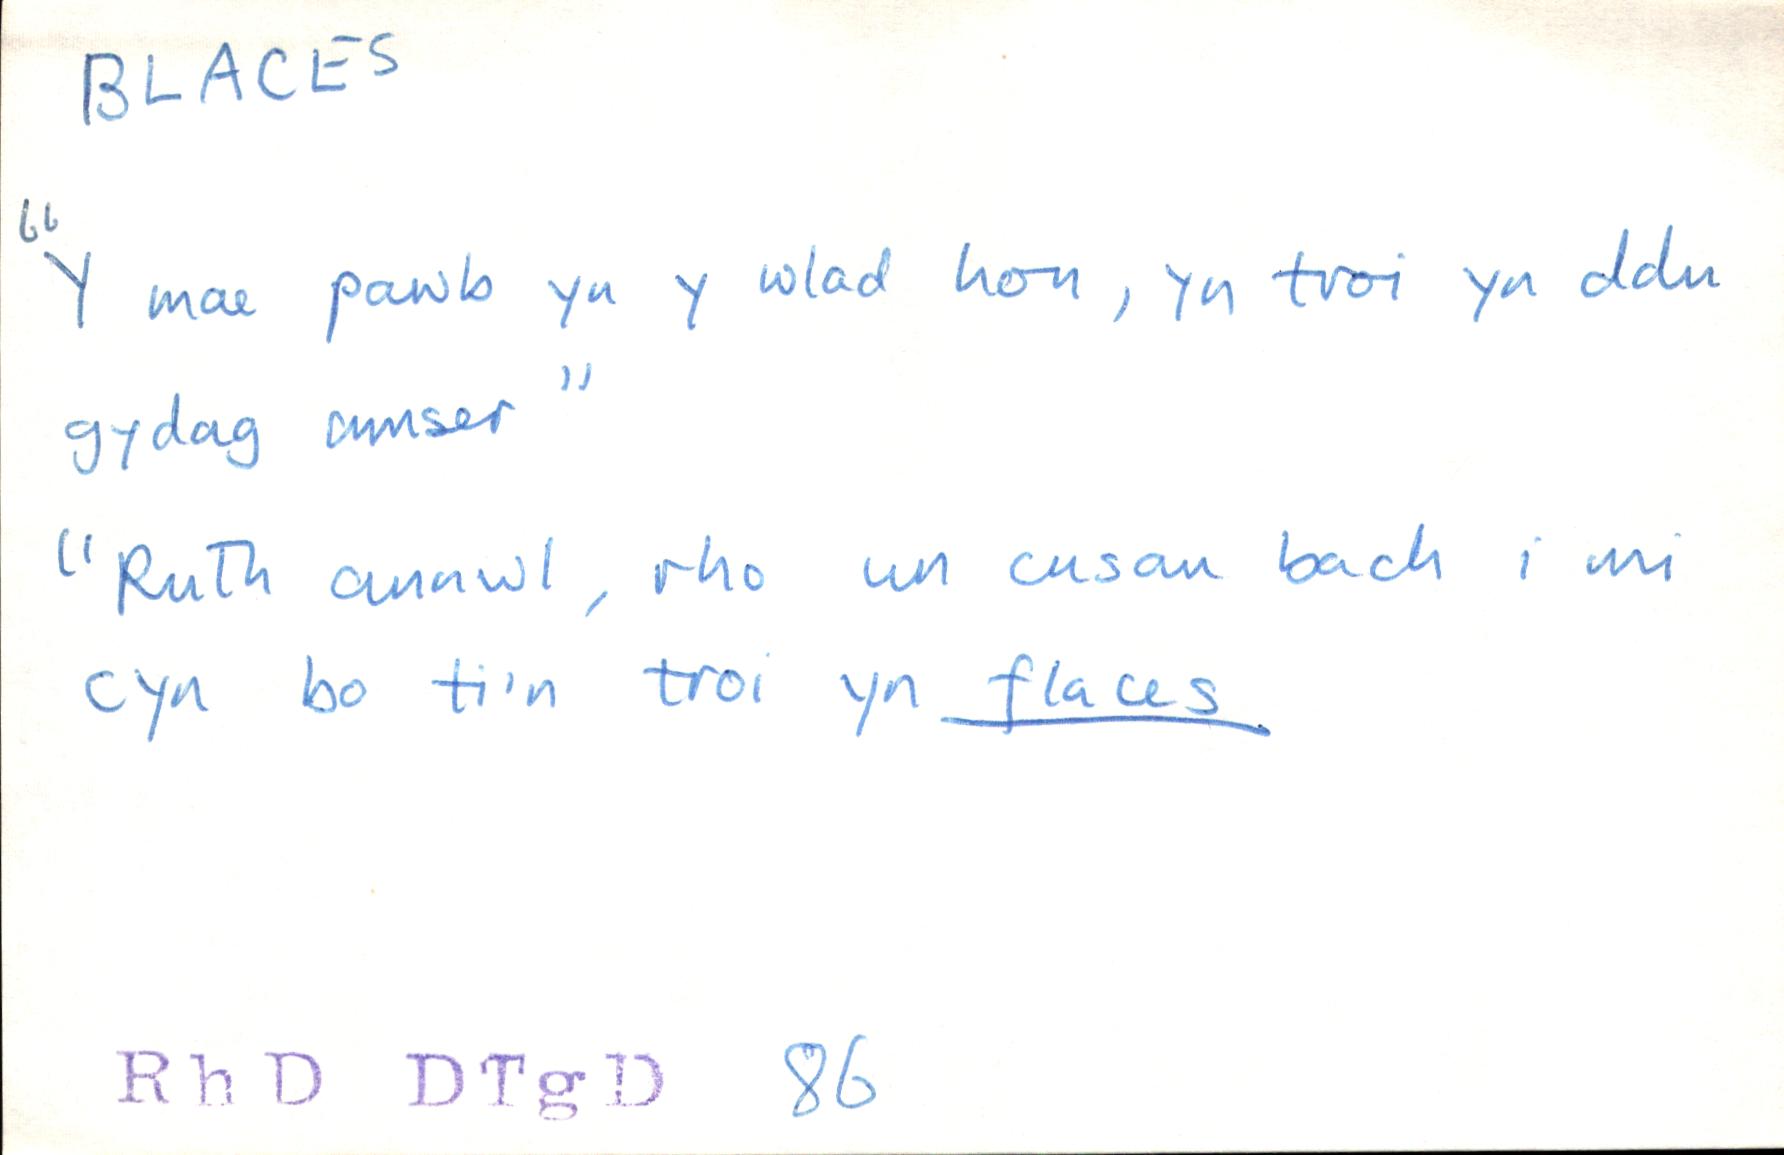 BLACES
"Y mae pawb yn y wlad hon, yn troi yn ddu
gydag amser"
"Ruth annwl, rho un cusan bach i mi
cyn bo ti'n troi yn flaces
RhD DTgD 86